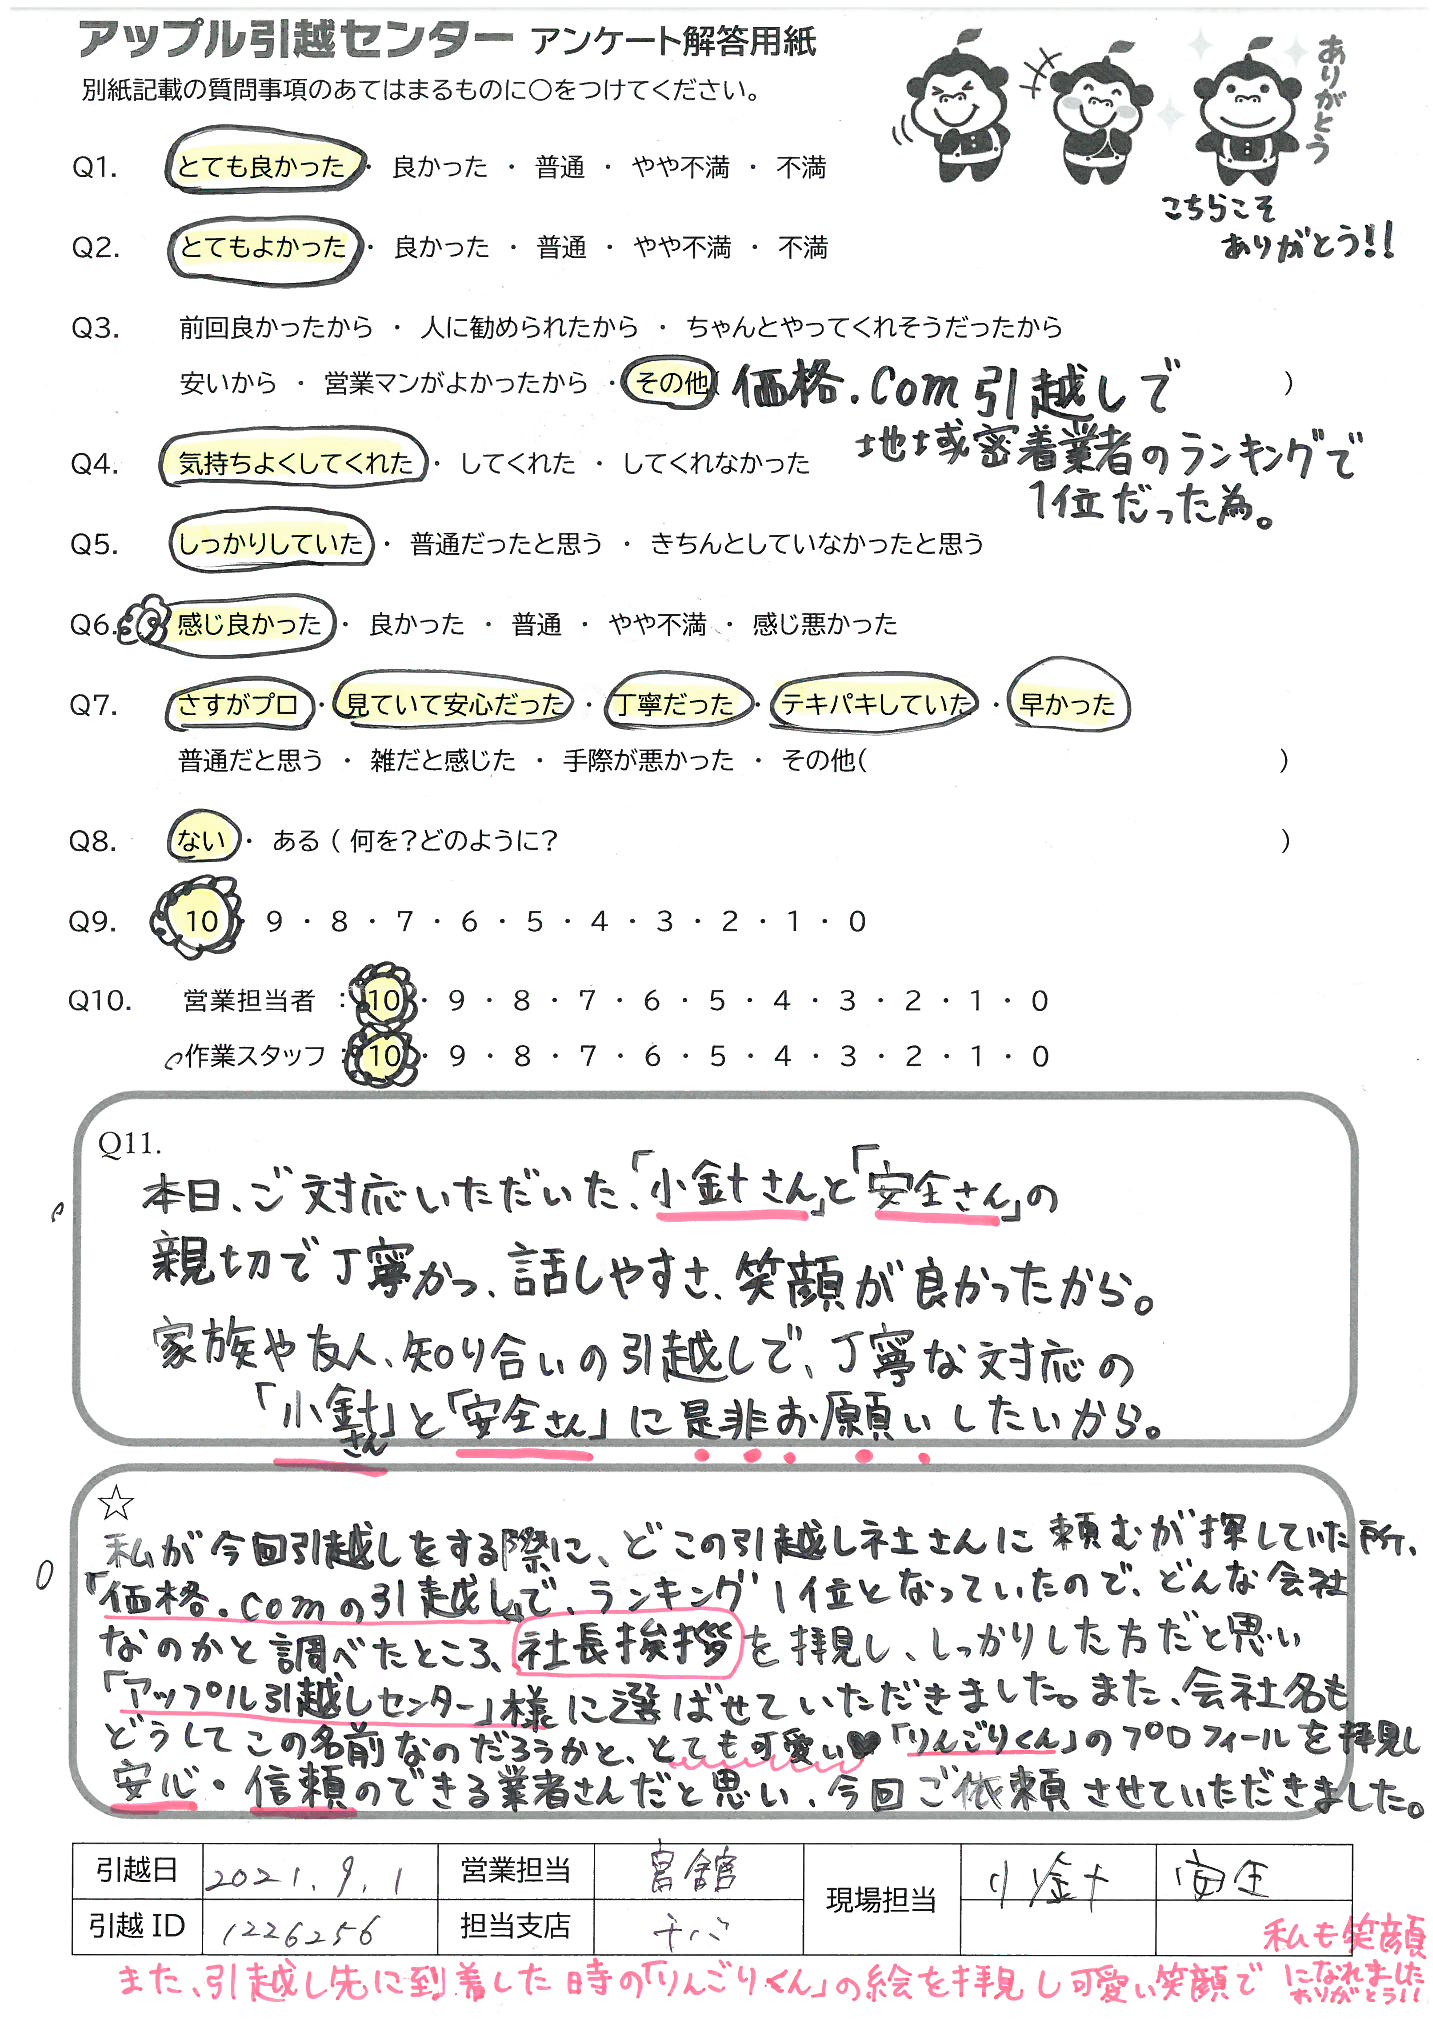 アップル引越センター アンケート解答用紙
別紙記載の質問事項のあてはまるものに○をつけてください。
ありがとう
こちらこそ
ありがとう!!
Q1. とても良かった ・ 良かった ・ 普通 ・ やや不満 ・ 不満
Q2. とてもよかった ・ 良かった ・ 普通 ・ やや不満 ・ 不満
Q3. 前回良かったから ・ 人に勧められたから ・ ちゃんとやってくれそうだったから
安いから ・ 営業マンがよかったから ・ その他( 価格.com引越しで )
地域密着業者のランキングで
1位だった為。
Q4. 気持ちよくしてくれた ・ してくれた ・ してくれなかった
Q5. しっかりしていた ・ 普通だったと思う ・ きちんとしていなかったと思う
Q6. 感じ良かった ・ 良かった ・ 普通 ・ やや不満 ・ 感じ悪かった
Q7. さすがプロ ・ 見ていて安心だった ・ 丁寧だった ・ テキパキしていた ・ 早かった
普通だと思う ・ 雑だと感じた ・ 手際が悪かった ・ その他( )
Q8. ない ・ ある ( 何を?どのように? )
Q9. 10 ・ 9 ・ 8 ・ 7 ・ 6 ・ 5 ・ 4 ・ 3 ・ 2 ・ 1 ・ 0
Q10. 営業担当者 : 10 ・ 9 ・ 8 ・ 7 ・ 6 ・ 5 ・ 4 ・ 3 ・ 2 ・ 1 ・ 0
作業スタッフ : 10 ・ 9 ・ 8 ・ 7 ・ 6 ・ 5 ・ 4 ・ 3 ・ 2 ・ 1 ・ 0
Q11.
本日、ご対応いただいた、「小針さん」と「安全さん」の
親切で丁寧かつ、話しやすさ、笑顔が良かったから。
家族や友人、知り合いの引越しで、丁寧な対応の
「小針さん」と「安全さん」に是非お願いしたいから。
☆
私が今回引越しをする際に、どこの引越し社さんに頼むが探していた所、
「価格.comの引越し」で、ランキング1位となっていたので、どんな会社
なのかと調べたところ、社長挨拶を拝見し、しっかりした方だと思い
「アップル引越しセンター」様に選ばせていただきました。また、会社名も
どうしてこの名前なのだろうかと、とても可愛い♥「りんごりくん」のプロフィールを拝見し
安心・信頼のできる業者さんだと思い、今回ご依頼させていただきました。
引越日 2021.9.1 営業担当 宮舘 現場担当 小針 安全
引越ID 1226256 担当支店 千バ
また、引越し先に到着した時の「りんごりくん」の絵を拝見し可愛い笑顔で
私も笑顔
になれました
ありがとう!!